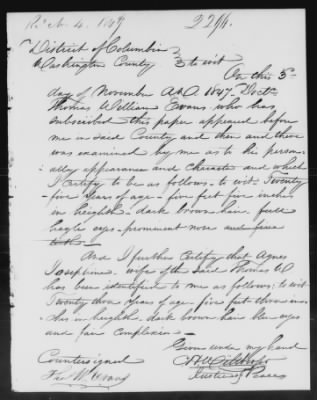 2296.
District of Columbia
Washington County } to wit
On this 3d
day of November A.D. 1847. Doct.
Thomas William Evans who has
subscribed this paper appeared before
me in said County and then and there
was examined by me as to his person-
ally appearance and Character and which
I Certify to be as follows. to wit. Twenty
-five Years of age - five feet five inches
in heighth - dark brown hair, full
hazle eyes - prominent nose and
And I further Certify that Agnes
Josephine. wife of the said Thomas W
has been identified to me as follows; to wit
Twenty three Years of age - five feet three in-
ches in heighth, dark brown hair blue eyes
and fair complexion -
Given under my hand
Countersigned
Justice of Peace